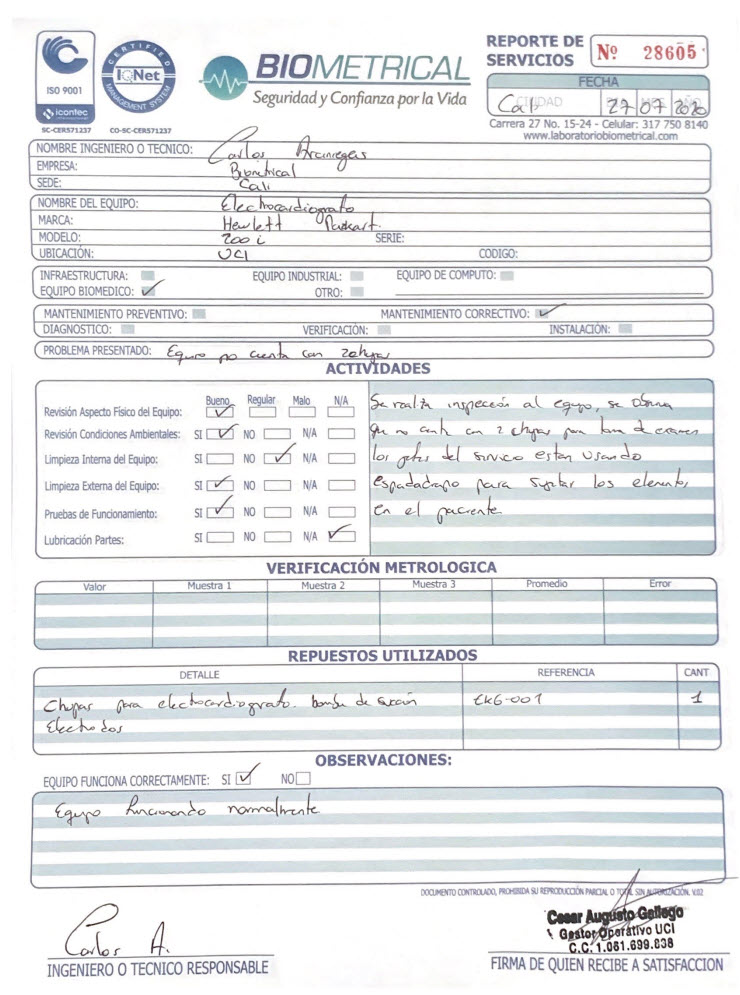 ISO 9001
icontec
SC-CER571237
CERTIFIED
IQNet
MANAGEMENT SYSTEM
CO-SC-CER571237
BIOMETRICAL
Seguridad y Confianza por la Vida
REPORTE DE SERVICIOS
Nº 28605
FECHA
CIUDAD Cali 27 07 2020
Carrera 27 No. 15-24 - Celular: 317 750 8140
www.laboratoriobiometrical.com
NOMBRE INGENIERO O TECNICO: Carlos Aranregas
EMPRESA: Biometrical
SEDE: Cali
NOMBRE DEL EQUIPO: Electrocardiografo
MARCA: Hewlett Packart.
MODELO: 200 i SERIE:
UBICACIÓN: UCI CODIGO:
INFRAESTRUCTURA: EQUIPO INDUSTRIAL: EQUIPO DE COMPUTO:
EQUIPO BIOMEDICO: ✓ OTRO:
MANTENIMIENTO PREVENTIVO: MANTENIMIENTO CORRECTIVO: ✓
DIAGNOSTICO: VERIFICACIÓN: INSTALACIÓN:
PROBLEMA PRESENTADO: Equipo no cuenta con 2 chupas
ACTIVIDADES
Bueno Regular Malo N/A
Revisión Aspecto Físico del Equipo: ✓
Revisión Condiciones Ambientales: SI ✓ NO N/A
Limpieza Interna del Equipo: SI NO ✓ N/A
Limpieza Externa del Equipo: SI ✓ NO N/A
Pruebas de Funcionamiento: SI ✓ NO N/A
Lubricación Partes: SI NO N/A ✓
Se realiza inspección al equipo, se observa
que no cuenta con 2 chupas para toma de examen
los jefes del servicio estan usando
espadadrapo para sujetar los elementos
en el paciente
VERIFICACIÓN METROLOGICA
Valor Muestra 1 Muestra 2 Muestra 3 Promedio Error
REPUESTOS UTILIZADOS
DETALLE REFERENCIA CANT
Chupas para electrocardiografo. bomba de succión EKG-001 1
Electrodos
OBSERVACIONES:
EQUIPO FUNCIONA CORRECTAMENTE: SI ✓ NO
Equipo funcionando normalmente
DOCUMENTO CONTROLADO, PROHIBIDA SU REPRODUCCIÓN PARCIAL O TOTAL SIN AUTORIZACIÓN. V.02
Carlos A.
INGENIERO O TECNICO RESPONSABLE
Cesar Augusto Gallego
Gestor Operativo UCI
C.C. 1.061.699.838
FIRMA DE QUIEN RECIBE A SATISFACCION